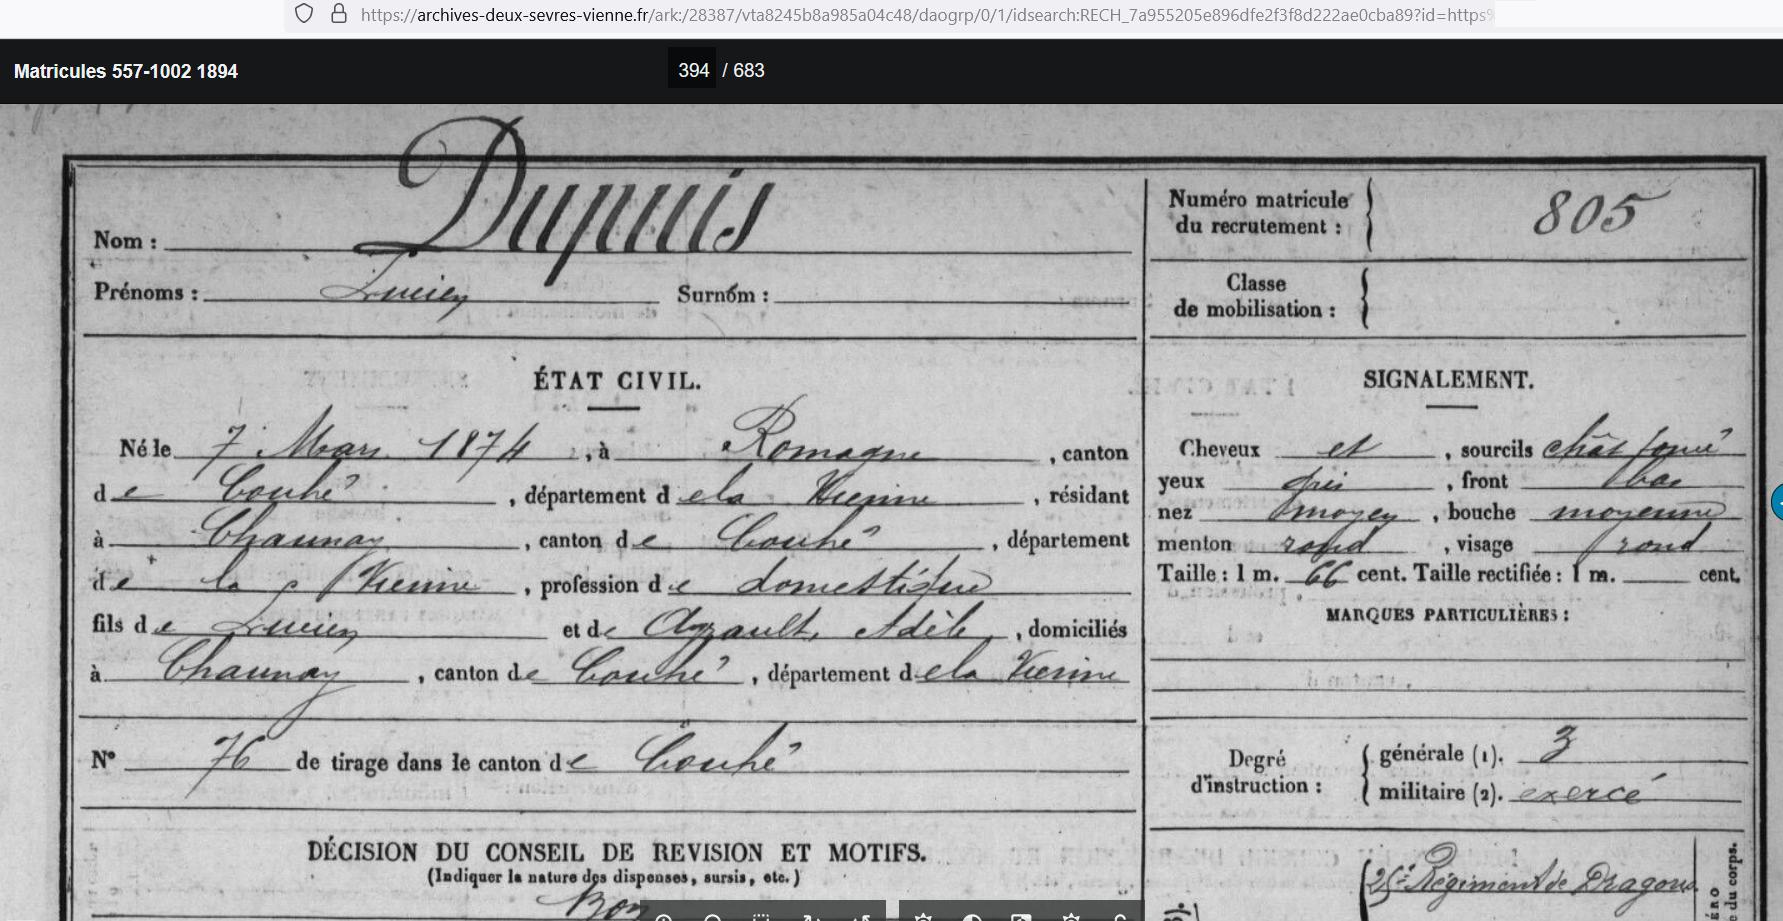 https://archives-deux-sevres-vienne.fr/ark:/28387/vta8245b8a985a04c48/daogrp/0/1/idsearch:RECH_7a955205e896dfe2f3f8d222ae0cba89?id=https%
Matricules 557-1002 1894
394 / 683
Dupuis
Nom :
Prénoms : Lucien Surnom :
Numéro matricule du recrutement : 805
Classe de mobilisation :
ÉTAT CIVIL.
Né le 7 Mars 1874, à Romagne, canton
de Couhé, département de la Vienne, résidant
à Chaunay, canton de Couhé, département
de la Vienne, profession de domestique
fils de Lucien et de Agrault, Adèle, domiciliés
à Chaunay, canton de Couhé, département de la Vienne
N° 76 de tirage dans le canton de Couhé
DÉCISION DU CONSEIL DE REVISION ET MOTIFS.
(Indiquer la nature des dispenses, sursis, etc.)
Bon
SIGNALEMENT.
Cheveux et, sourcils chât foncé
yeux gris, front bas
nez moyen, bouche moyenne
menton rond, visage rond
Taille : 1 m. 66 cent. Taille rectifiée : 1 m. cent.
MARQUES PARTICULIÈRES :
Degré d'instruction :
générale (1). 3
militaire (2). exercé
25e Régiment de Dragons
du corps.